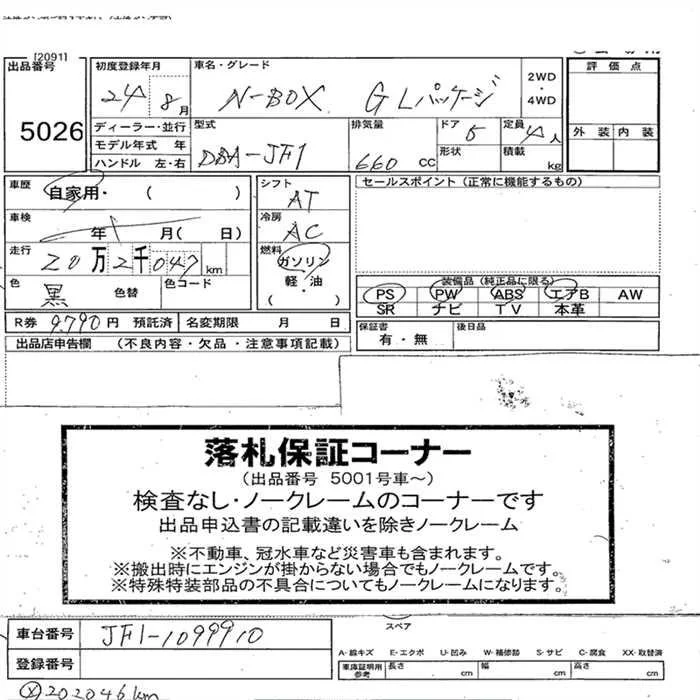 [2091]
出品番号
5026
初度登録年月
24 8月
車名・グレード
N-BOX GLパッケージ
2WD
・
4WD
評価点
外装 内装
ディーラー・並行
モデル年式 年
ハンドル 左・右
型式
DBA-JF1
排気量
660 CC
ドア 5
形状
定員 4人
積載 kg
車歴
自家用・( )
車検
年 月( 日)
走行
20万2千047km
色
黒 色替
色コード
シフト
AT
冷房
AC
燃料
ガソリン
軽・油
( )
セールスポイント(正常に機能するもの)
装備品(純正品に限る)
PS PW ABS エアB AW
SR ナビ TV 本革
R券 9,790円 預託済
名変期限 月 日
保証書
有・無
後日品
出品店申告欄 (不良内容・欠品・注意事項記載)
落札保証コーナー
(出品番号 5001号車~)
検査なし・ノークレームのコーナーです
出品申込書の記載違いを除きノークレーム
※不動車、冠水車など災害車も含まれます。
※搬出時にエンジンが掛からない場合でもノークレームです。
※特殊特装部品の不具合についてもノークレームになります。
車台番号
JF1-1099910
登録番号
スペア
A-線キズ E-エクボ U-凹み W-補修跡 S-サビ C-腐食 XX-取替済
車庫証明用
参考
長さ cm 幅 cm 高さ cm
202046km